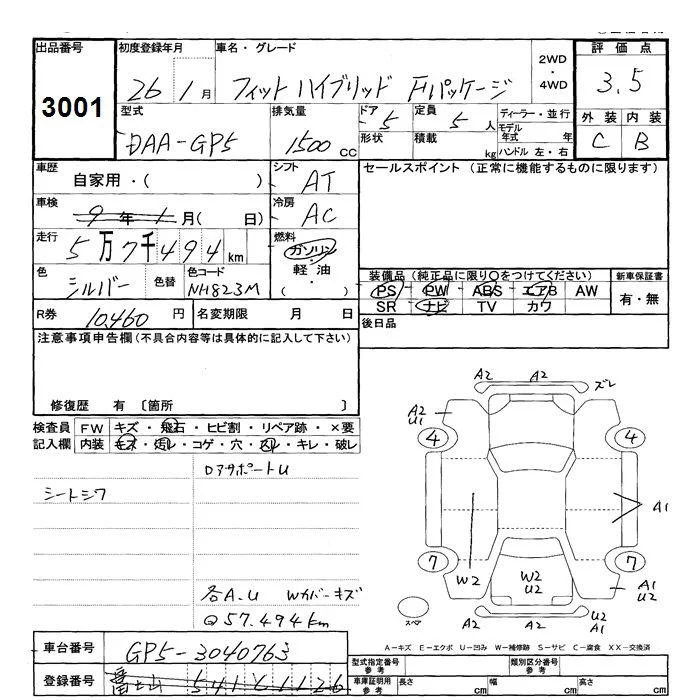 出品番号 初度登録年月 車名・グレード 2WD・4WD 評価点
3001 26 1月 フィット ハイブリッド Fパッケージ 3.5
型式 排気量 ドア 5 定員 5人 ディーラー・並行 外装 内装
DAA-GP5 1500cc 形状 積載 kg モデル年式 年 ハンドル 左・右 C B
車歴 自家用・( ) シフト AT セールスポイント (正常に機能するものに限ります)
車検 9年1月( 日) 冷房 AC
走行 5万7千494km 燃料 ガソリン・軽油・( )
色 シルバー 色替 色コード NH823M
装備品 (純正品に限り○をつけてください) 新車保証書
PS PW ABS エアB AW 有・無
SR ナビ TV カワ
R券 10,460円 名変期限 月 日 後日品
注意事項申告欄 (不具合内容等は具体的に記入して下さい)
修復歴 有 〔箇所 〕
検査員 FW キズ・飛石・ヒビ割・リペア跡・×要
記入欄 内装 キズ・汚レ・コゲ・穴・スレ・キレ・破レ
DアサポートU
シートシワ
各A.U Wカバーキズ
Q57.494km
A2 A2 ズレ
A2
U1
4 4
A1
7 7
W2 W2
U2
A1
U2
スペア
U2
A1
A-キズ E-エクボ U-凹み W-補修跡 S-サビ C-腐食 XX-交換済
車台番号 GP5-3040763 型式指定番号 参考 類別区分番号 参考
登録番号 車庫証明用 参考 長さ cm 幅 cm 高さ cm